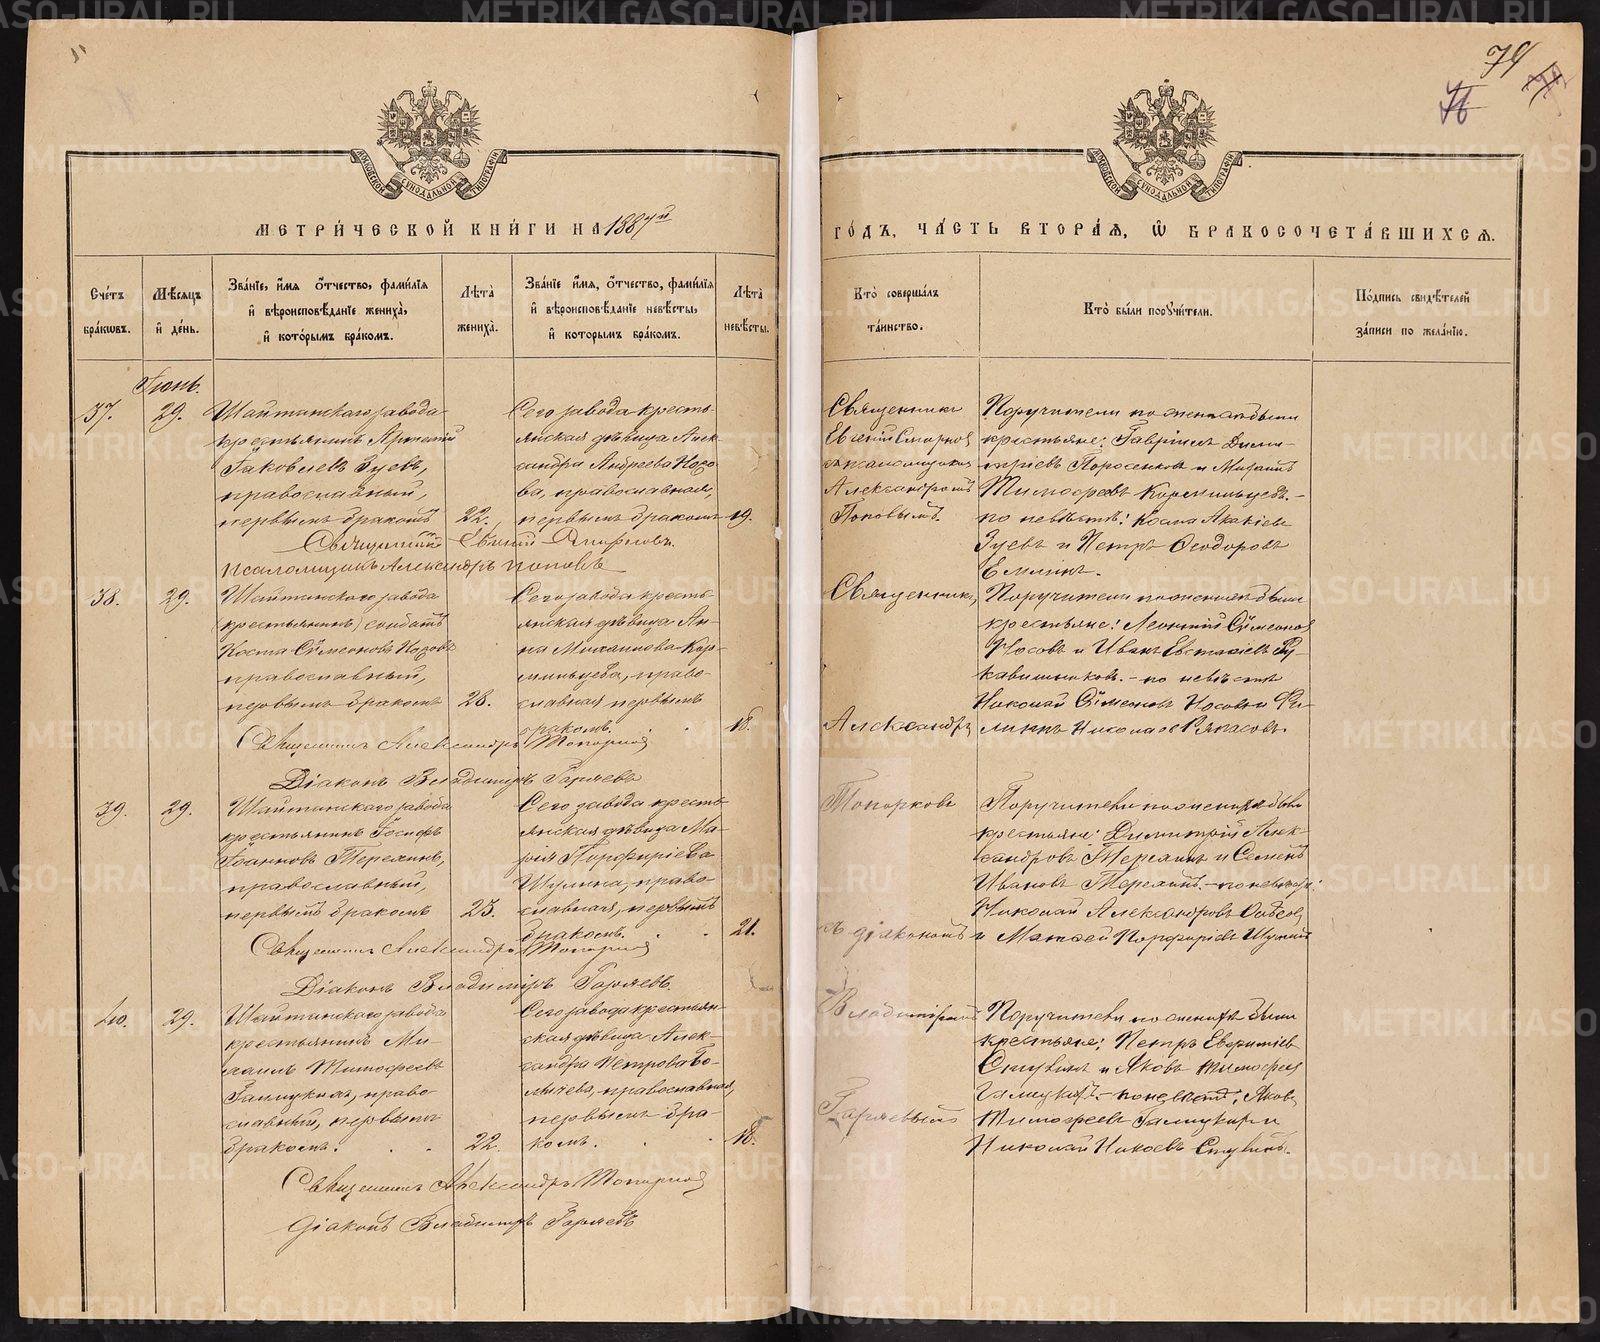 79
МЕТРИ́ЧЕСКОЙ КНИ́ГИ НА 1887й
ГО́ДЪ, ЧА́СТЬ ВТОРА́Я, Ѡ БРАКОСОЧЕТА́ВШИХСЯ.
Сче́тъ бра́кωвъ.
Мѣ́сяцъ и де́нь.
Зва́нїе, и́мя, о́тчество, фами́лїя и вѣроисповѣ́данїе жениха̀, и кото́рымъ бра́комъ.
Лѣ́та жениха̀.
Зва́нїе, и́мя, о́тчество, фами́лїя и вѣроисповѣ́данїе невѣ́сты, и кото́рымъ бра́комъ.
Лѣ́та невѣ́сты.
Кто̀ соверша́лъ та́инство.
Кто̀ бы́ли поручи́тели.
По́дпись свидѣ́телей за́писи по жела́нїю.
Іюнь.
37.
29.
Шайтанскаго завода
крестьянинъ
Іаковлевъ Зуевъ,
православный,
первымъ бракомъ
22.
Сего завода кресть-
янская дѣвица Алек-
сандра Андреева Носо-
ва, православная,
первымъ бракомъ
19.
Священникъ
Евгеній
Александромъ
Поповымъ.
Поручители по женихѣ были
крестьяне: Гавріилъ Дими-
тріевъ Поросенковъ и
Тимофеевъ Кормильцевъ. –
по невѣстѣ: Косма
Зуевъ и Петръ Ѳеодоровъ
Священникъ Евгеній
псаломщикъ Александръ Поповъ
38.
29.
Шайтанскаго завода
(крестьянинъ) солдатъ
Косма Сѵмеоновъ Носовъ
православный,
первымъ бракомъ
28.
Сего завода кресть-
янская дѣвица Ан-
на Михаилова Кор-
мильцева, право-
славная первымъ
бракомъ.
18.
Священникъ
Александръ
Поручители по женихѣ были
крестьяне: Леонтій Сѵмеоновъ
Носовъ и Иванъ Евстафіевъ Ру-
кавишниковъ. – по невѣстѣ
Николай Сѵмеоновъ Носовъ и Фи-
липпъ Николаевъ
Священникъ Александръ Топорковъ
Діаконъ Владимиръ Горяевъ
39.
29.
Шайтанскаго завода
крестьянинъ Іосифъ
Іоанновъ Терехинъ,
православный,
первымъ бракомъ
23.
Сего завода кресть-
янская дѣвица Ма-
рія Порфиріева
Шулина, право-
славная, первымъ
бракомъ.
21.
Топорковъ
съ діакономъ
Поручители по женихѣ были
крестьяне: Димитрій Алек-
сандровъ Терехинъ и Семенъ
Ивановъ Терехинъ. – по невѣстѣ:
Николай Александровъ
и Матвей Порфиріевъ Шулинъ
Священникъ Александръ Топорковъ
Діаконъ Владимиръ Горяевъ.
40.
29.
Шайтанскаго завода
крестьянинъ Ми-
хаилъ Тимофеевъ
право-
славный, первымъ
бракомъ.
22.
Сего завода крестьян-
ская дѣвица Алек-
сандра Петрова
православная,
первымъ бра-
комъ.
18.
Владиміромъ
Горяевымъ
Поручители по женихѣ были
крестьяне: Петръ Евфиміевъ
и Яковъ Тимофеев
по невѣстѣ: Яковъ
Тимофеевъ и
Николай
Священникъ Александръ Топорковъ
діаконъ Владимиръ Горяевъ
METRIKI.GASO-URAL.RU